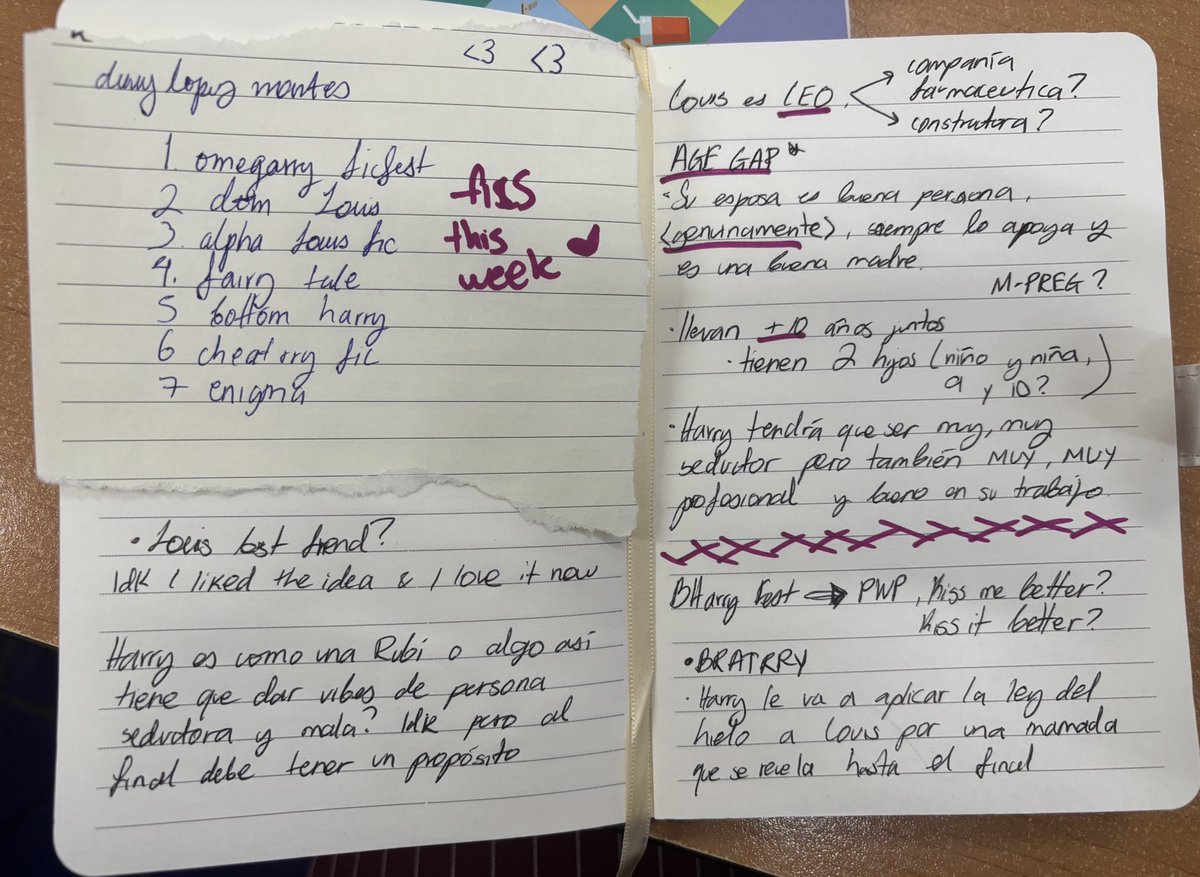 <3 <3
lopez montes
1. omegarry ficfest
2 dom Louis
3. alpha Louis fic
4. fairy tale
5 bottom harry
6 cheatrry fic
7 enigma
fics
this
week
• Louis best friend?
Idk I liked the idea & I love it now
Harry es como una Rubí o algo así
tiene que dar vibes de persona
seductora y mala? Idk pero al
final debe tener un propósito
Louis es CEO
compañía
farmaceutica?
construtora?
AGE GAP*
• Su esposa es buena persona,
(genuinamente), siempre lo apoya y
es una buena madre.
M-PREG?
• llevan +10 años juntos
• tienen 2 hijos (niño y niña,
9 y 10?)
• Harry tendrá que ser muy, muy
seductor pero también MUY, MUY
profesional y bueno en su trabajo.
BHarry Fest → PWP, Kiss me better?
Kiss it better?
• BRATRRY
• Harry le va a aplicar la ley del
hielo a Louis por una mamada
que se revela hasta el final